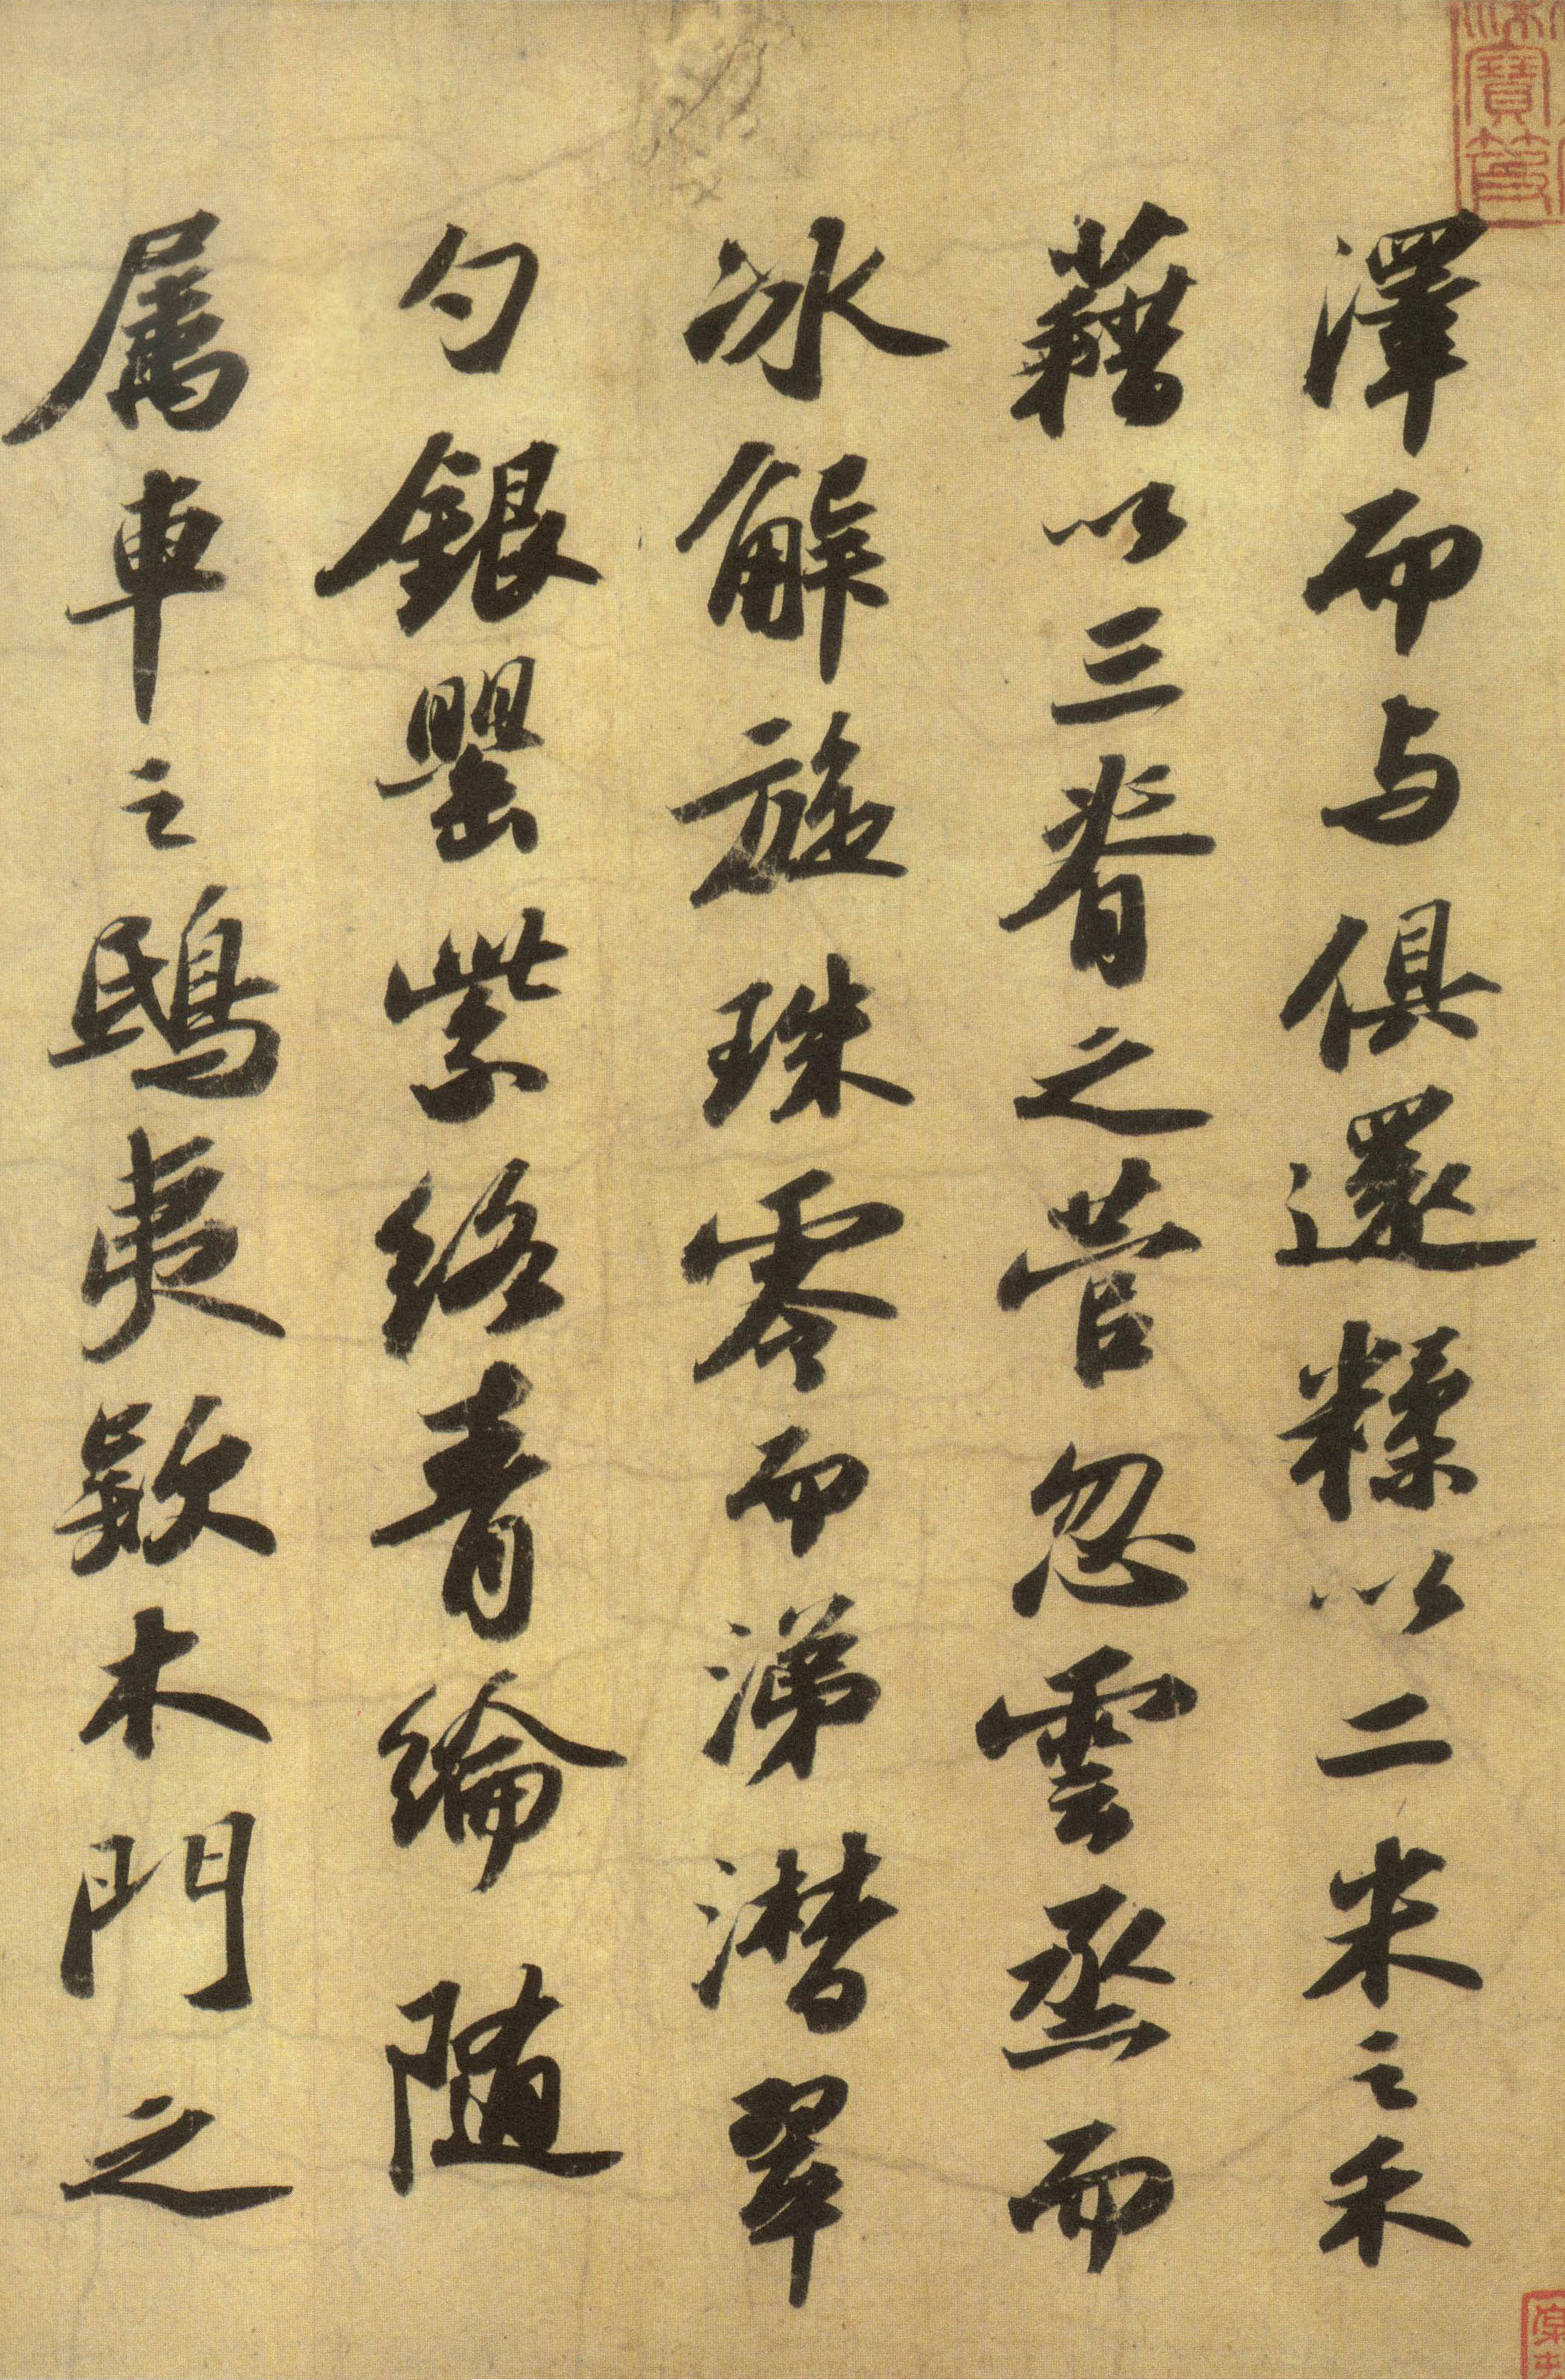 澤而与俱還糅以二米之禾
藉以三脊之菅忽雲烝而
冰解旋珠零而涕潸翠
勺銀罌紫絡青綸隨
属車之鴟夷欵木門之
寶